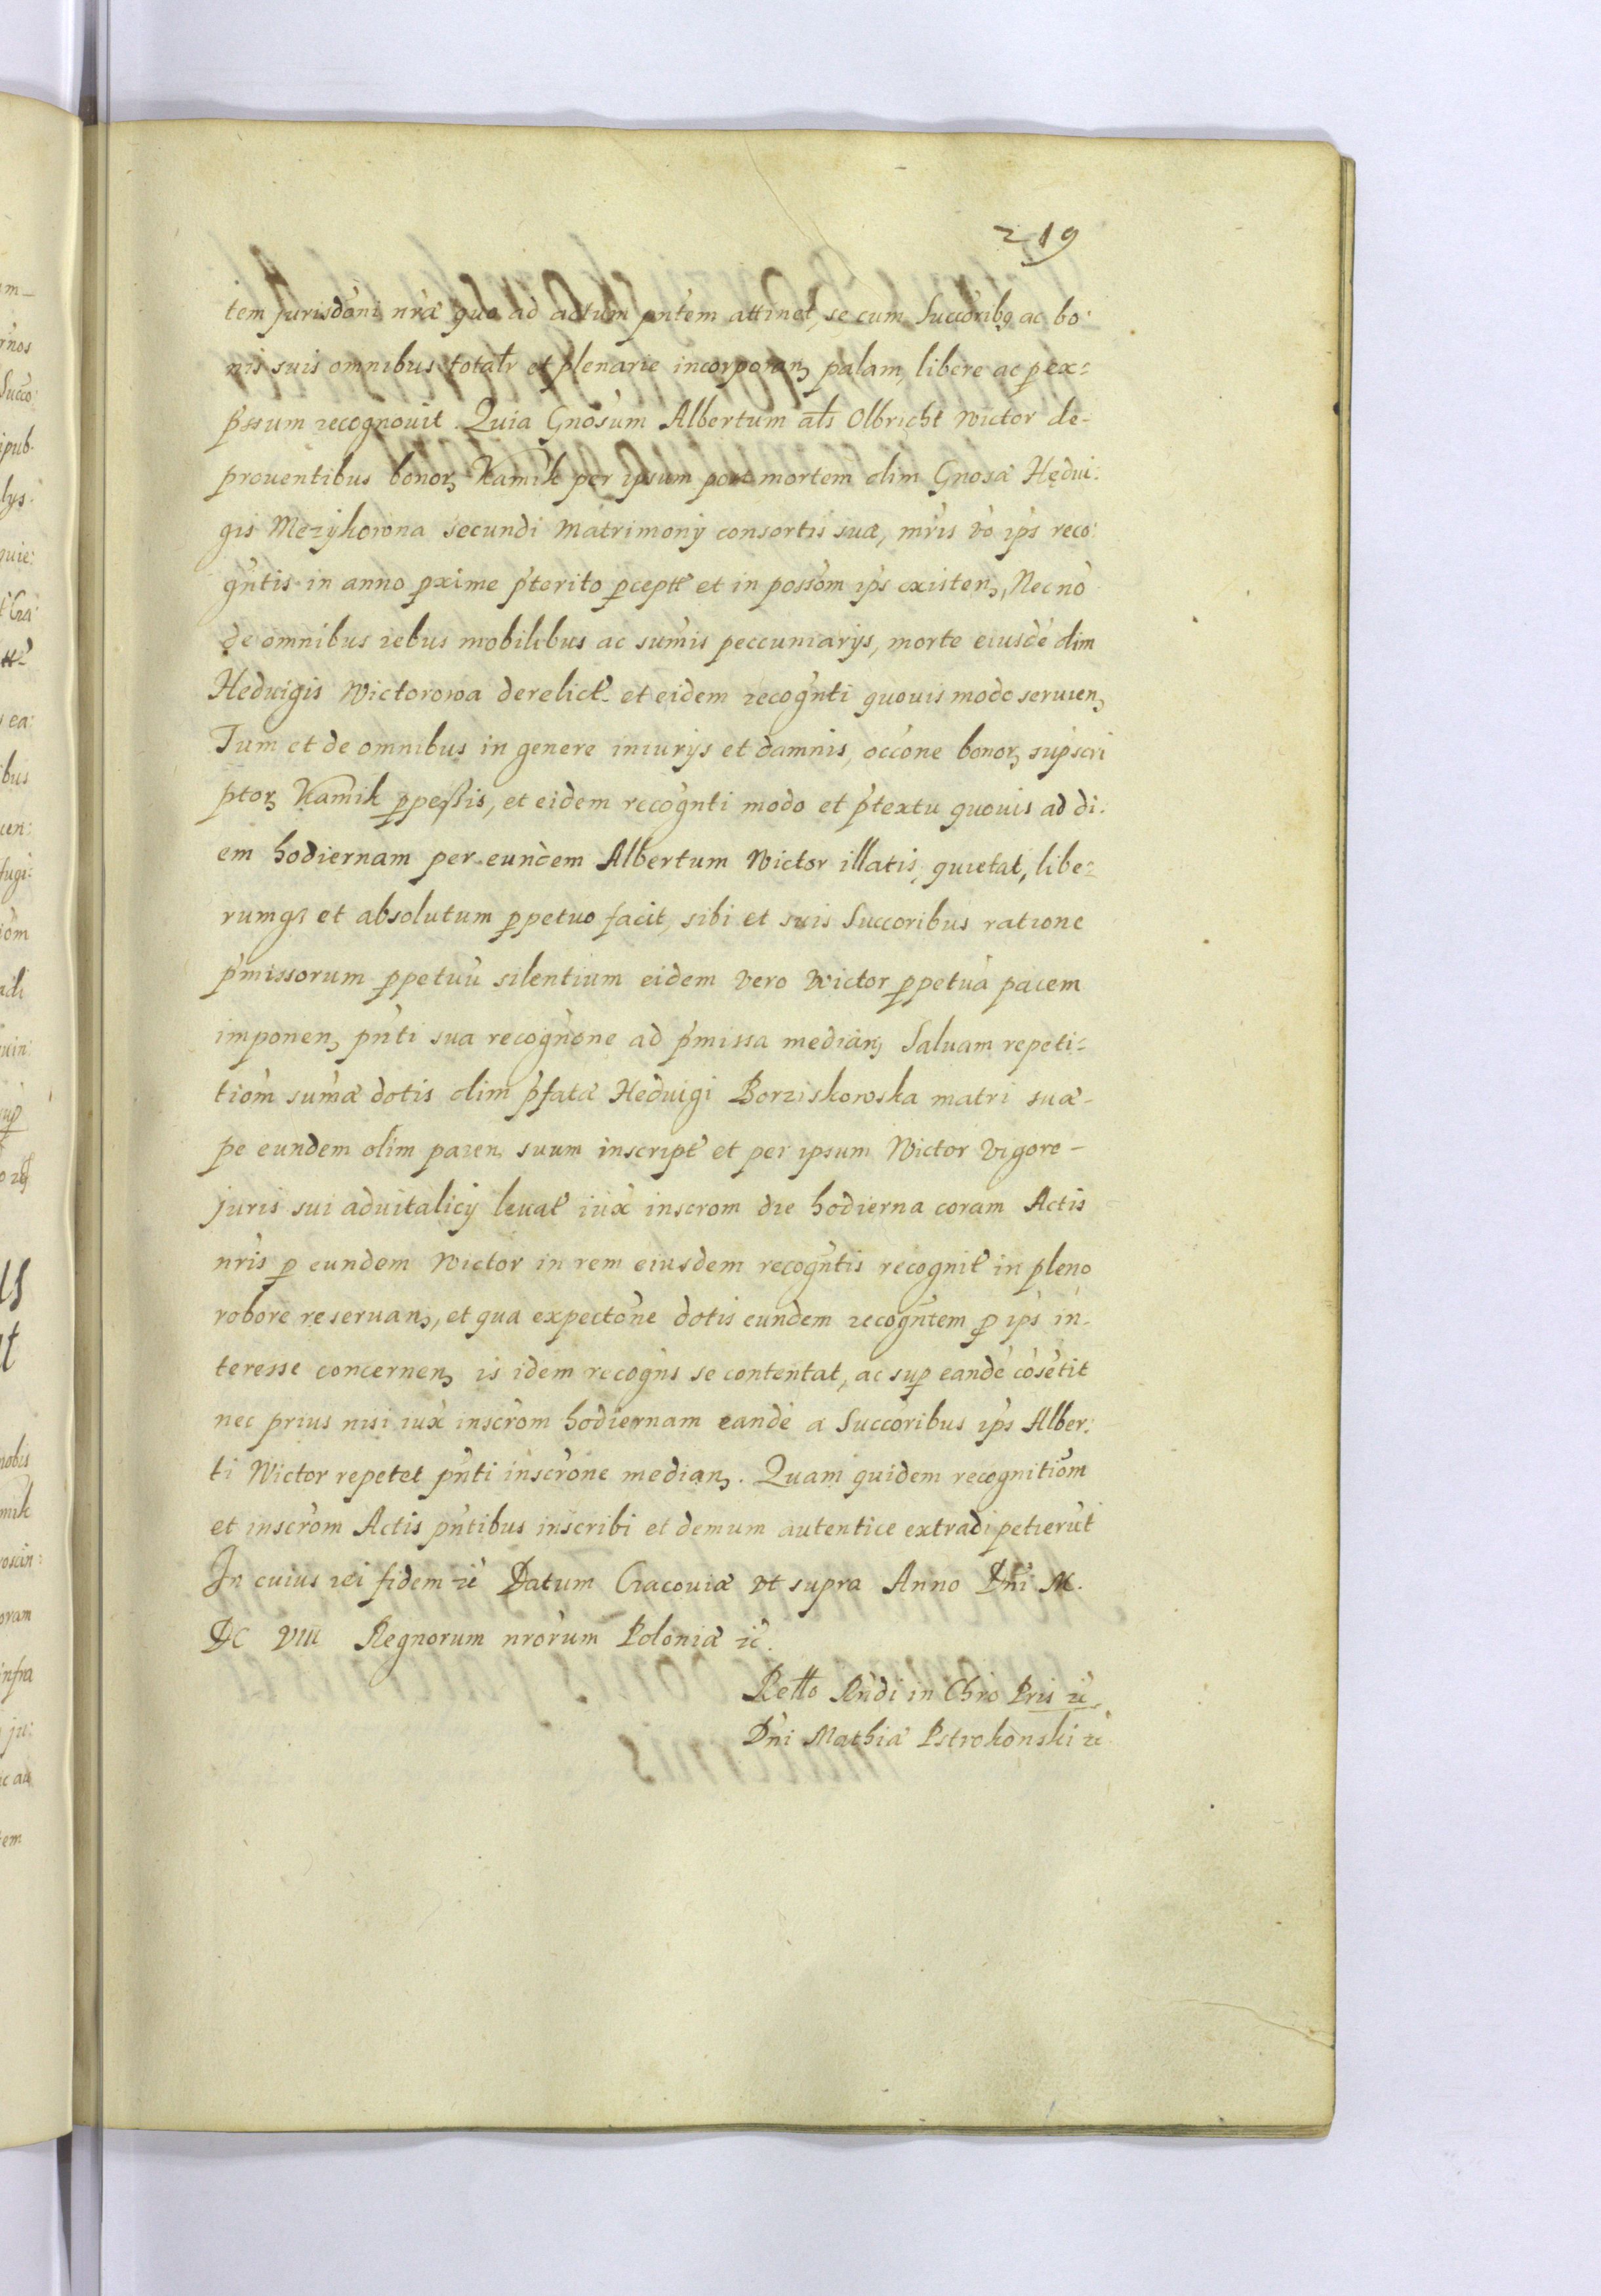 219
tem jurisdōni nr̃æ quo ad actum pn̄tem attinet, se cum Succōribꝫ ac bo:
nis suis omnibus totalr̃ et plenarie incorporanꝫ palam, libere ac p ex=
pssum recognouit. Quia Gnōsum Albertum als Olbricht Wictor de-
prouentibus bonorꝫ Kamik per ipsum post mortem olim Gnosæ Hedui:
gis Mezykowna secundi Matrimonij consortis suæ, mr̃is vo ips reco:
gn̄tis in anno pxime pterito pcept et in possōm ips existenꝫ, Necnō
de omnibus rebus mobilibus ac sum̄is peccuniarijs, morte eiusdē olim
Heduigis Wictorowa derelict et eidem recogn̄ti quouis modo seruienꝫ
Tum et de omnibus in genere iniurijs et damnis, occōne bonorꝫ supscri
ptorꝫ Kamik ppessis, et eidem recogn̄ti modo et ptextu quouis ad di:
em hodiernam per eundem Albertum Wictor illatis, quietat, libe=
rumqꝫ et absolutum ppetuo facit, sibi et suis Succoribus ratione
pmissorum ppetuū silentium eidem vero Wictor ppetuā pacem
imponenꝫ pn̄ti sua recognōne ad pmissa medianꝫ Saluam repeti=
tiom̄ sum̄æ dotis olim pfatæ Heduigi Borziskowska matri suæ-
pe eundem olim paren, suum inscript et per ipsum Wictor vigore-
juris sui aduitalicij leuat iux̄ inscrōm die hodierna coram Actis
nr̃is p eundem Wictor in rem eiusdem recogn̄tis recognit in pleno
robore reseruanꝫ, et qua expectōne dotis eundem recogn̄tem p ips in-
teresse concernenꝫ is idem recogn̄s se contentat, ac sup eandē cōsētit
nec prius nisi iux̄ inscrōm hodiernam eandē a Succōribus ips Alber:
ti Wictor repetet pn̄ti inscrōne medianꝫ. Quam quidem recognitiōm
et inscrōm Actis pn̄tibus inscribi et demum autentice extradi petierūt
In cuius rei fidem ꝛc̄ Datum Cracouiæ vt supra Anno Dn̄i M.
DC VIII Regnorum nrōrum Poloniæ ꝛc̄.
Retto Rn̄di in Chrō Pris ꝛc̄
Dn̄i Mathiæ Pstrokonski ꝛc̄